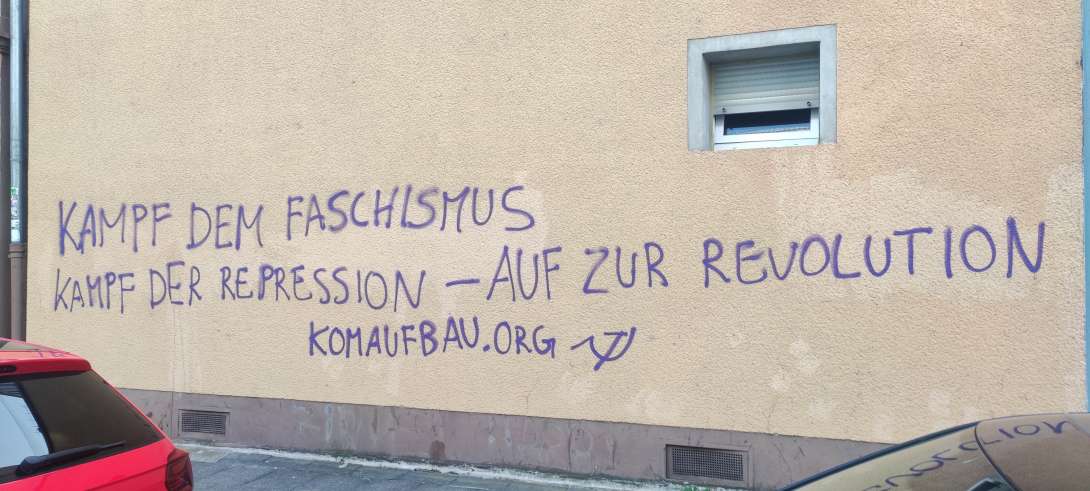 KAMPF DEM FASCHISMUS
KAMPF DER REPRESSION – AUF ZUR REVOLUTION
KOMAUFBAU.ORG